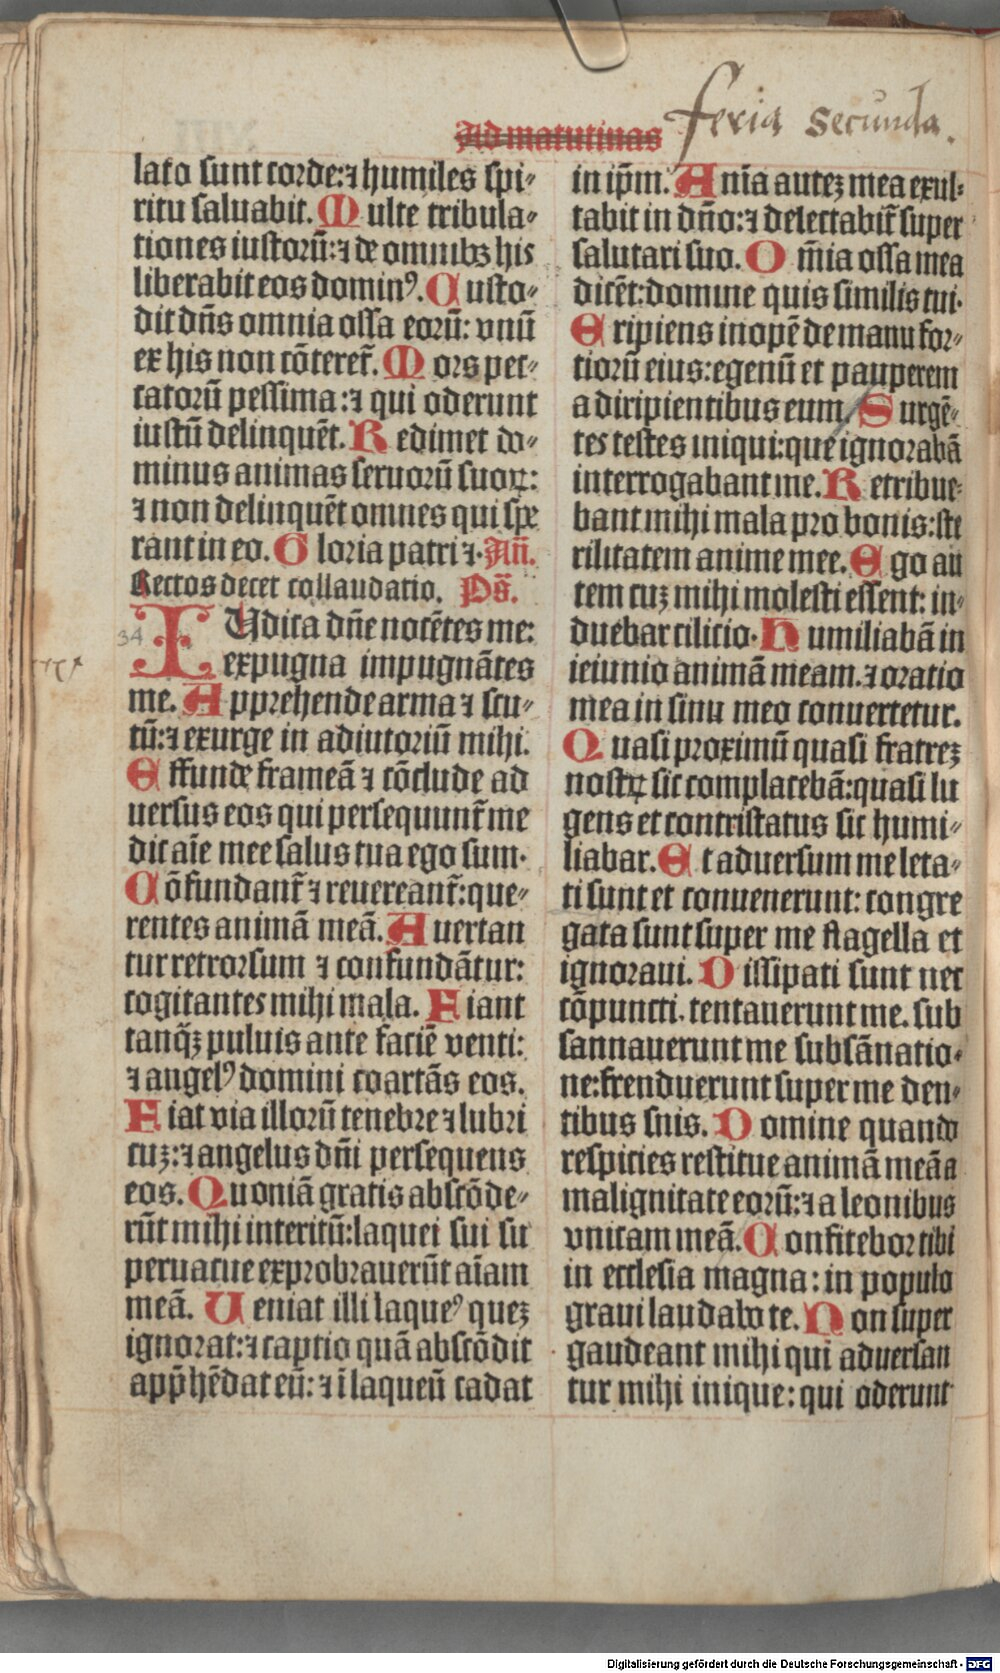 Ad matutinas
feria secunda.
lato sunt corde:⁊ humiles spi-
ritu saluabit. Multe tribula-
tiones iustorū:⁊ de omnibꝫ his
liberabit eos dominꝰ. Custo-
dit dn̄s omnia ossa eorū: vnū
ex his non cōteret̄. Mors pec-
catorū pessima:⁊ qui oderunt
iustū delinquēt. Redimet do-
minus animas seruorū suoꝝ:
⁊ non delinquēt omnes qui spe
rant in eo. Gloria patri ⁊. An̄.
Rectos decet collaudatio. Ps̄.
34
IUdica dn̄e nocētes me:
expugna impugnātes
me. Apprehende arma ⁊ scu-
tū:⁊ exurge in adiutoriū mihi.
Effunde frameā ⁊ cōclude ad
uersus eos qui persequunt̄ me
dic aīe mee salus tua ego sum.
Cōfundant̄ ⁊ reuereant̄:que-
rentes animā meā. Auertan
tur retrorsum ⁊ confundātur:
cogitantes mihi mala. Fiant
tanq̄ꝫ puluis ante faciē venti:
⁊ angelꝰ domini coartās eos.
Fiat via illorū tenebre ⁊ lubri
cuꝫ:⁊ angelus dn̄i persequens
eos. Quoniā gratis abscōde-
rūt mihi interitū:laquei sui sit
peruacue exprobrauerūt aīam
meā. Ueniat illi laqueꝰ queꝫ
ignorat:⁊ captio quā abscōdit
app̄hēdat eū:⁊ ī laqueū cadat
in ip̄m. Anīa auteꝫ mea exul-
tabit in dn̄o:⁊ delectabit̄ super
salutari suo. Om̄ia ossa mea
dicēt:domine quis similis tui.
Eripiens inopē de manu for-
tiorū eius:egenū et pauperem
a diripientibus eum / Surgē-
tes testes iniqui:que ignorabā
interrogabant me. Retribue-
bant mihi mala pro bonis:ste
rilitatem anime mee. Ego au
tem cuꝫ mihi molesti essent: in-
duebar cilicio. Humiliabā in
ieiunio animā meam. ⁊ oratio
mea in sinu meo conuertetur.
Quasi proximū quasi fratreꝫ
nostꝝ sic complacebā:quasi lu
gens et contristatus sic humi-
liabar. Et aduersum me leta-
ti sunt et conuenerunt: congre
gata sunt super me flagella et
ignoraui. Dissipati sunt nec
cōpuncti. tentauerunt me. sub
sannauerunt me subsānatio-
ne:frenduerunt super me den-
tibus suis. Domine quando
respicies restitue animā meā a
malignitate eorū:⁊ a leonibus
vnicam meā. Confitebor tibi
in ecclesia magna: in populo
graui laudabo te. Non super
gaudeant mihi qui aduersan
tur mihi inique: qui oderunt
Digitalisierung gefördert durch die Deutsche Forschungsgemeinschaft - DFG